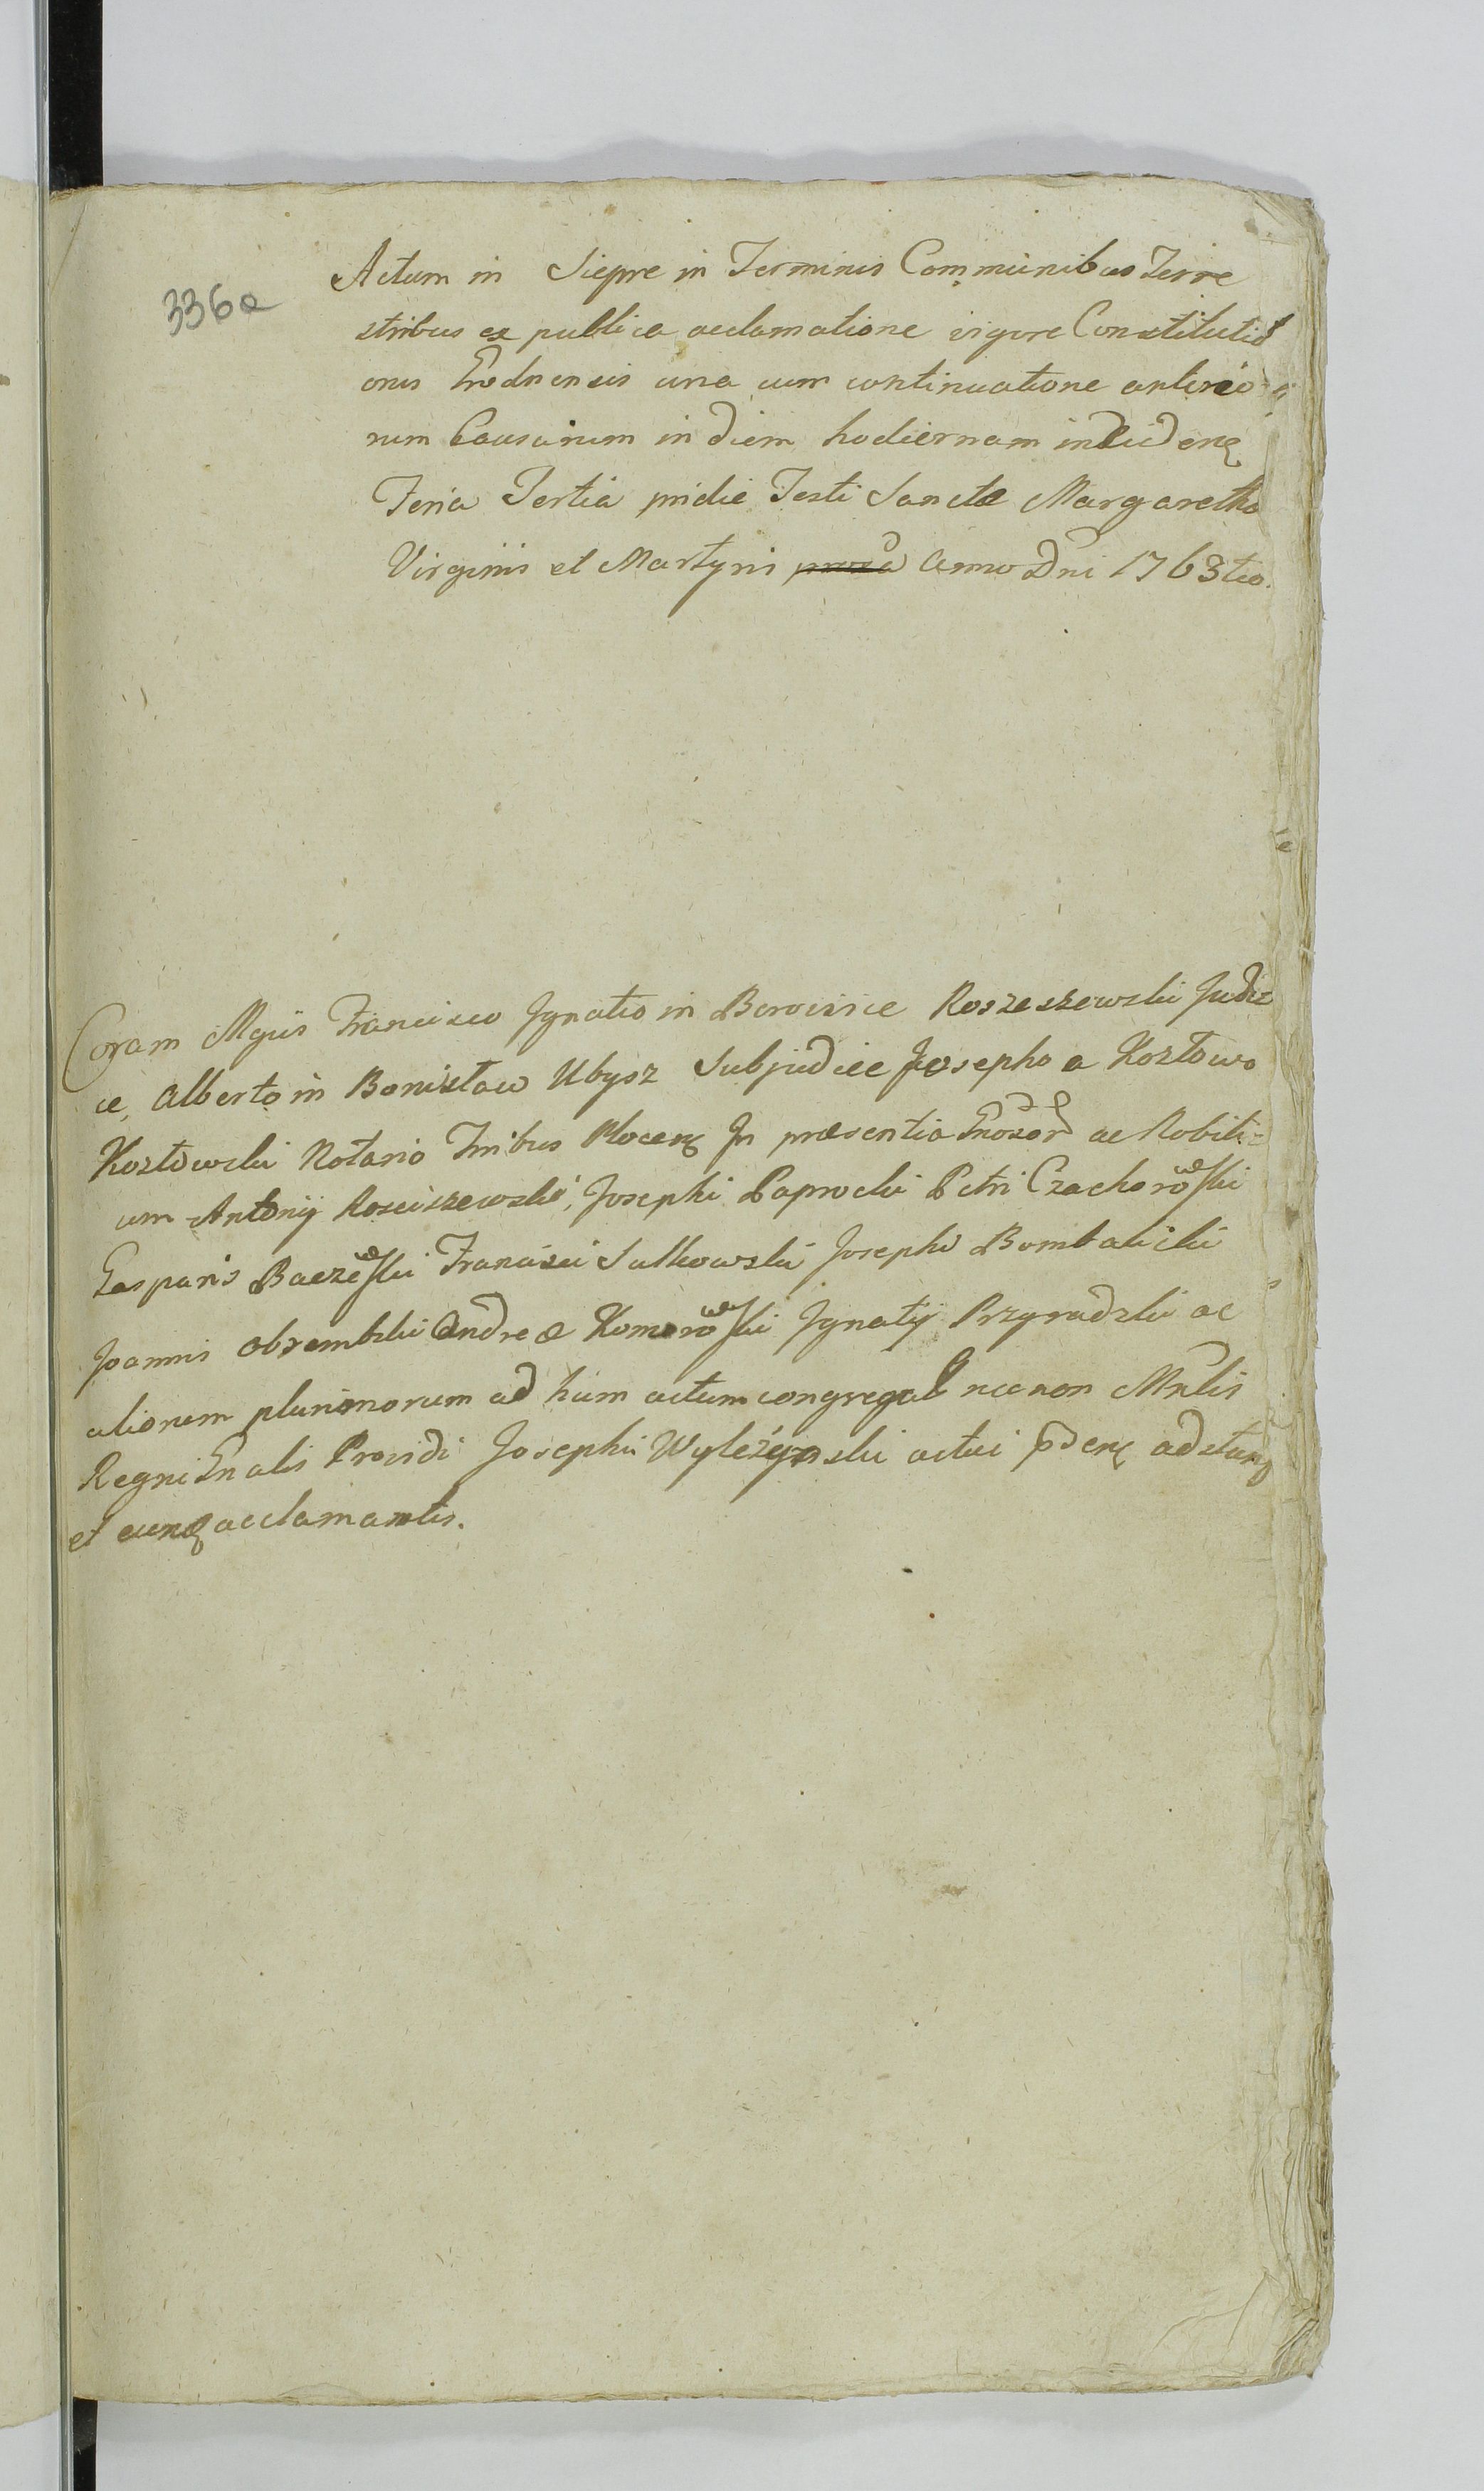 336a
Actum in Siepre in Terminis Communibus Terre
stribus ex publica acclamatione vigore Constituti
onis Grodnensis una cum continuatione anterio
rum Causarum in diem hodiernam incidenę
Feria Tertia pridie Festi Sanctæ Margaretha
Virginis et Martyris Anno Dni 1763tio.
Coram Mgcis Francisco Ignatio in Borowice Rosciszewski Judi
ce, Alberto in Bonisław Ubysz Subjudice Josepho a Kozłowo
Kozłowski Notario Tribus Plocenę In præsentia Gnosor ac Nobili=
um Antonij Rosciszewski, Josephi Paprocki Petri Czachorowski
Gasparis Baczewski Francisci Sulkowski Josephi Bombalicki
Joannis Obrembski Andreæ Komorowski Ignatij Przyradzki ac
aliorum plurimorum ad hunc actum congregat necnon Mnlis
Regni Gnalis Providi Josephi Wyleżynski actui pdenę adstanę
et eunę acclamantis.